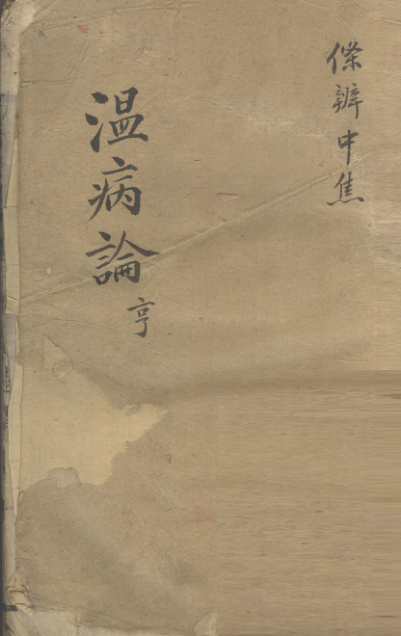 條辨中焦
温病論
亨